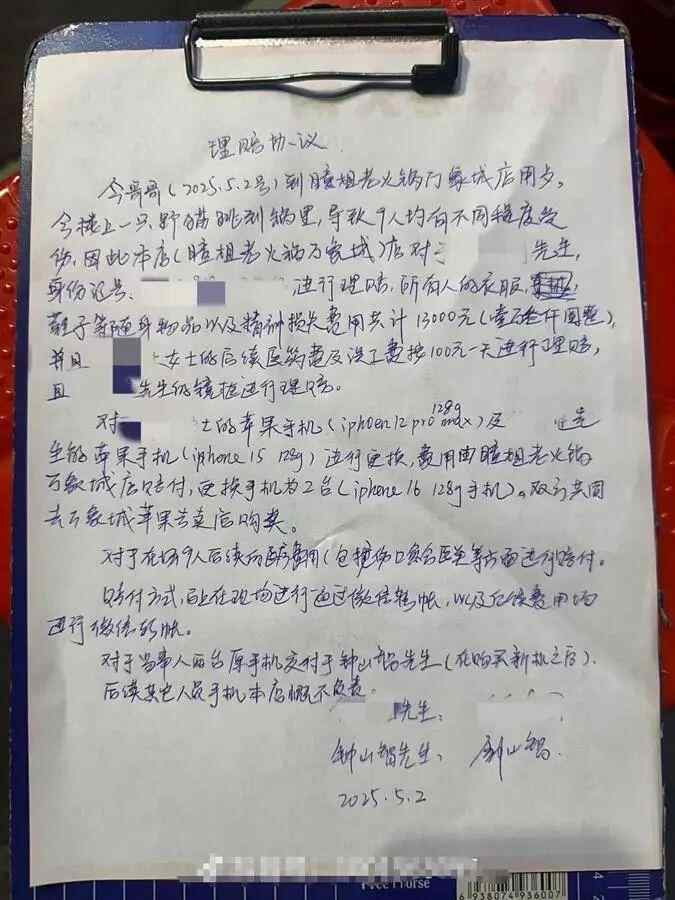 理赔协议
今哥哥(2025.5.2号)到瞳姐老火锅万象城店用歺。
今楼上一只野猫跳到锅里,导致9人均有不同程度受
伤,因此本店(瞳姐老火锅万象城)店对于 先生,
身份证号. 进行理赔,所有人的衣服,
鞋子等随身物品以及精神损失费用共计13000元(壹万叁仟圆整),
并且 女士的后续医药费及误工费按100元一天进行理赔,
且 先生的镜框进行理赔。
对 士的苹果手机(iphoen 12 pro max 128g)及 先
生的苹果手机(iphone 15 128g)进行更换,费用由瞳姐老火锅
万象城店赔付,更换手机为2台(iphone 16 128g手机)。双方共同
去万象城苹果专卖店购买。
对于在场9人后续的医药费用(包括伤口愈合医美等方面进行赔付。
赔付方式,在现场进行通过微信转帐,以及后续费用均
进行微信转帐。
对于当事人两台原手机交付于钟山智先生(在购买新机之后).
后续其它人员手机本店概不负责.
先生:
钟山智先生: 钟山智.
2025.5.2
Free Nurse
6 938074 936007